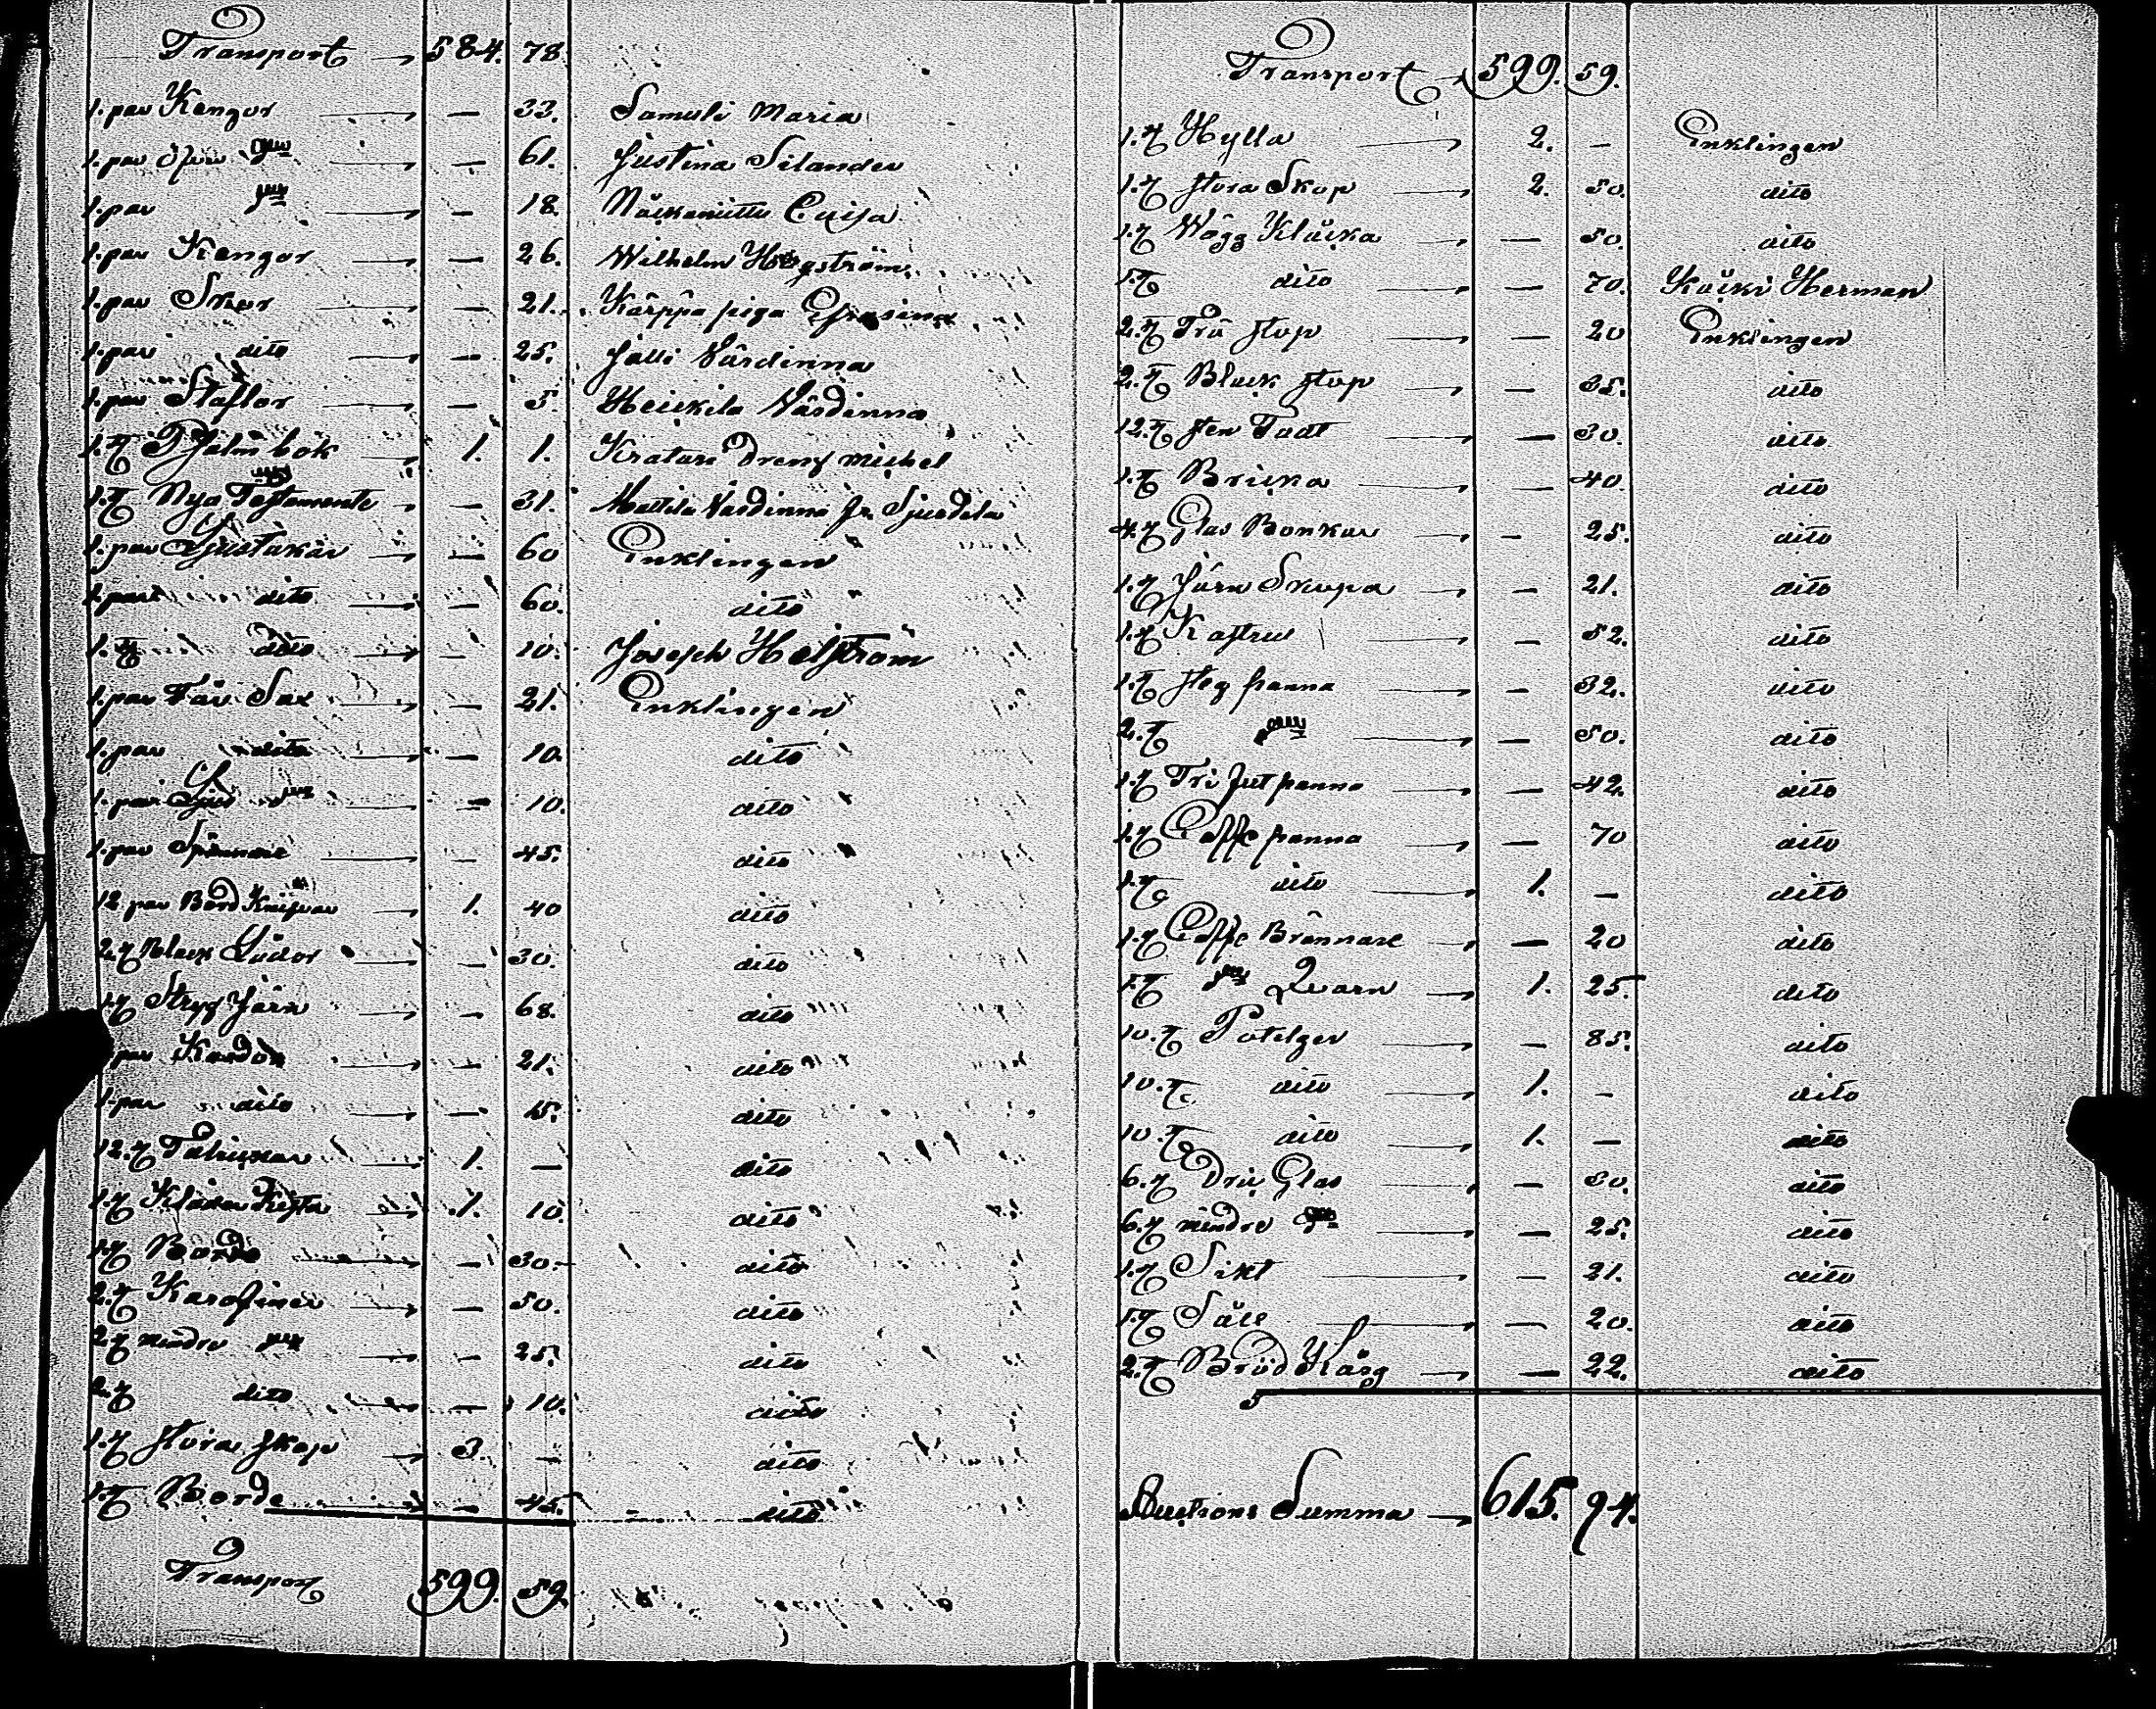 Transport 584. 78.
1. par Kengor — 33. Samuli Maria
1. par 61. Justina Selander
1. par — 18. Caisa
1. par Kengor — 26. Wilhelm Hägström
1. par Skor — 21. Kärppä piga Efrosina
1. par dito — 25. Jalli Värdinna
1. par Stäflor — 5. Heickila Värdinna
1. st Psalm bok 1. 1. Kratari Dreng Michel
1. st Nya Testamente — 31. Mattila Värdinna fr. Sjuedela
1. par Ljustakar — 60 Enklingen
1. par dito — 60. dito
1. st dito — 10. Joseph Helström
1. par Får Sax — 21. Enklingen
1. par dito — 10. dito
1. par Ljus — 10. dito
1. par Spännare — 45. dito
12 par Bord Knifvar 1. 40 dito
2. st Bleck Lådor — 30. dito
1. st Stryg Järn — 68. dito
par Kardor — 21. dito
1. par dito — 15. dito
12. st Talrickar 1. — dito
1. st Kläder Kista 1. 10. dito
1. st Borde — 30. dito
2. st Karafiner — 50. dito
2. st mindre — 25. dito
2. st dito — 10. dito
1. st stora skap 3. — dito
1. st Borde — 45. dito
Transport 599. 59.
Transport 599. 59.
1. st Hylla 2. — Enklingen
1. st stora Skop 2. 50. dito
1. st Wägg Klåcka — 50. dito
1. st dito — 70. Kåcki Herman
2. st Trä stop — 20 Enklingen
2. st Bleck stop — 35. dito
12. st sten Fadt — 30. dito
1. st Bricka — 40. dito
4. st Glas Bonkar — 25. dito
1. st Järn Skopa — 21. dito
1. st Kastrul — 52. dito
1. st steg panna — 32. dito
2. st — 50. dito
1. st Tri fut panna — 42. dito
1. st Caffe panna — 70 dito
1. st dito 1. — dito
1. st Caffe Brännare — 20 dito
1. st Qvarn 1. 25. dito
10. st Potelger — 85. dito
10. st dito 1. — dito
10. st dito 1. — dito
6. st Drick Glas — 30. dito
6. st mindre — 25. dito
1. st Sikt — 21. dito
1. st Såll — 20. dito
2. st Bröd Kårg — 22. dito
Auctions Summa 615. 94.